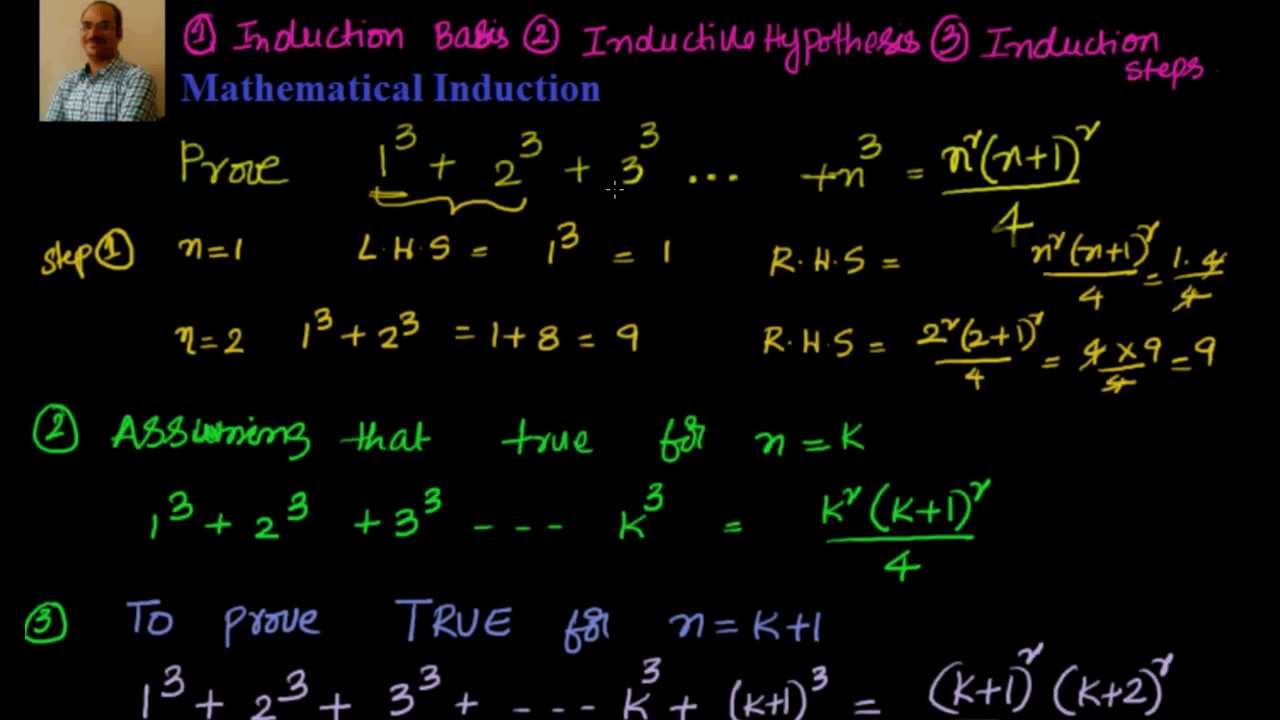 ① Induction Basis ② Inductive Hypothesis ③ Induction steps
Mathematical Induction
Prove 1³ + 2³ + 3³ ... +n³ = n²(n+1)²/4
Step ① n=1 L.H.S = 1³ = 1 R.H.S = n²(n+1)²/4 = 1.4/4
n=2 1³+2³ = 1+8 = 9 R.H.S = 2²(2+1)²/4 = 4×9/4 = 9
② Assuming that true for n=K
1³ + 2³ + 3³ ---- K³ = K²(K+1)²/4
③ To prove TRUE for n=K+1
1³ + 2³ + 3³ + ---- K³ + (K+1)³ = (K+1)² (K+2)²